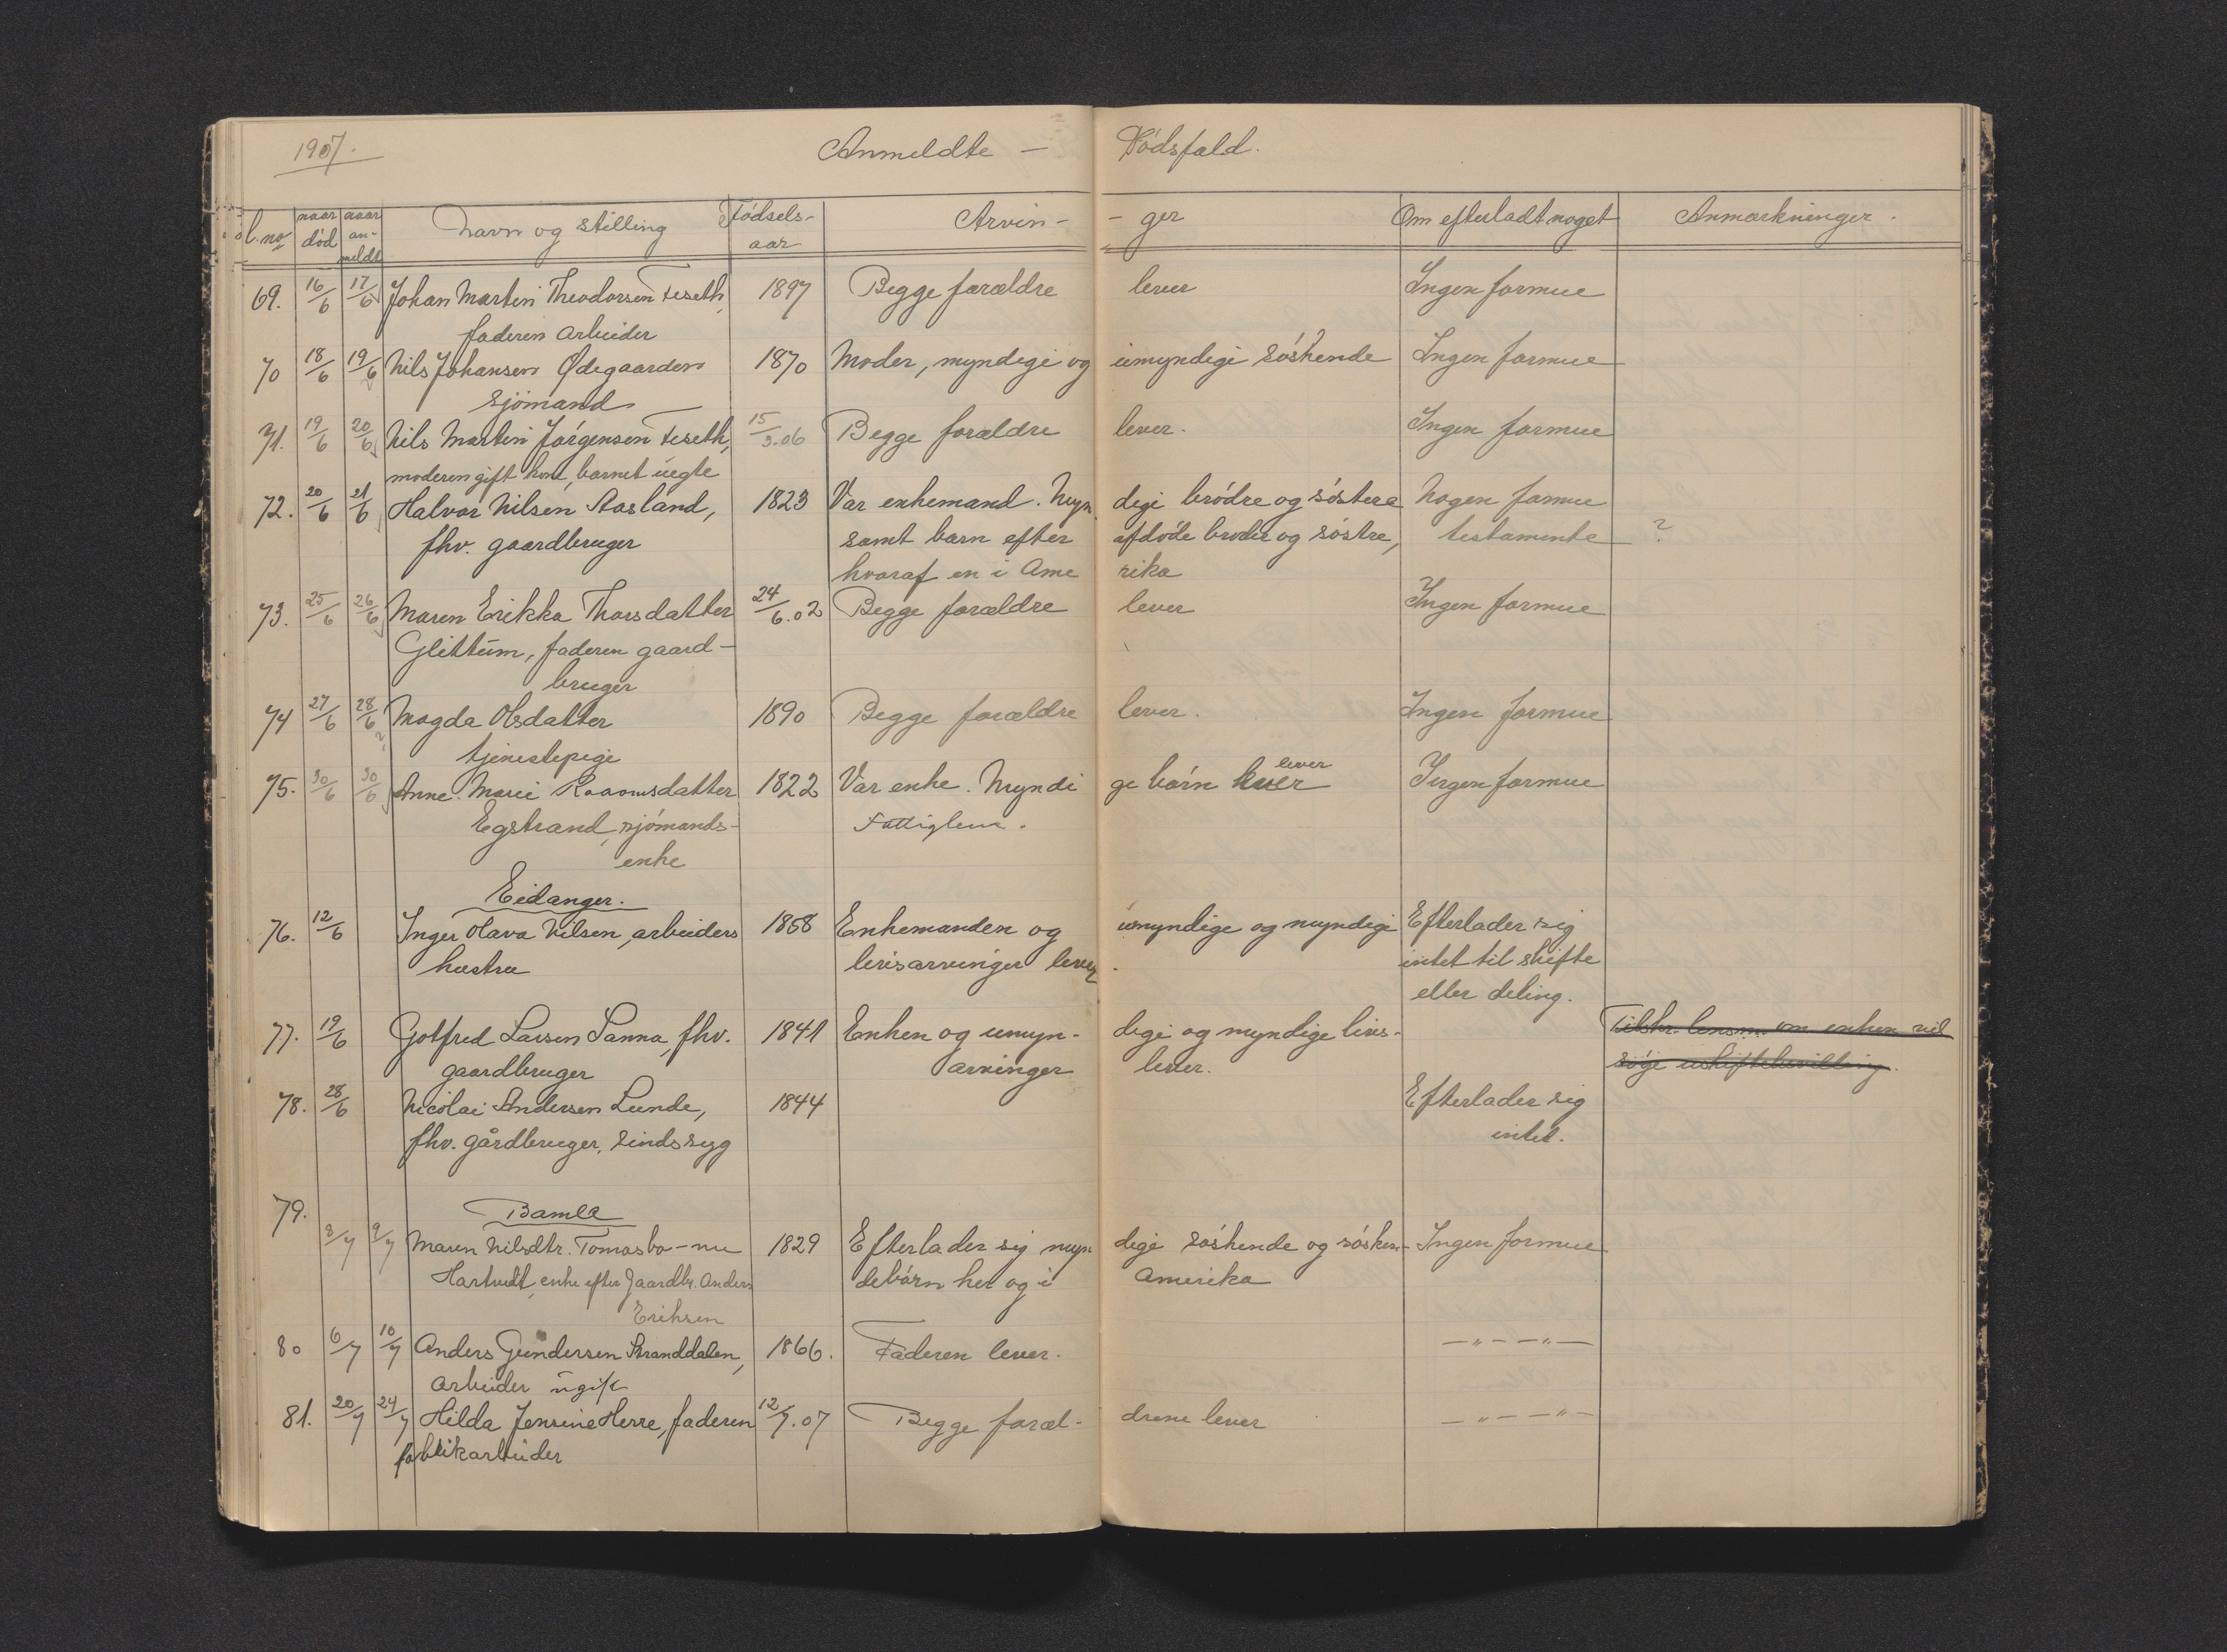 1907. Anmeldte — Dødsfald.
l. no naar død naar an- meldt Navn og stilling Fødsels- aar Arvin- - ger Om efterladt noget Anmærkninger.
69. 16/6 17/6 Johan Martin Theodorsen Feseth, 1897 Begge forældre lever Ingen formue
faderen arbeider
70 18/6 19/6 Nils Johansen Ødegaarden 1870 Moder, myndige og umyndige søskende Ingen formue
sjømand
71. 19/6 20/6 Nils Martin Jørgensen Feseth, 15/3.06 Begge forældre lever. Ingen formue
moderen gift kone, barnet uegte
72. 20/6 21/6 Halvor Nilsen Aasland, 1823 Var enkemand. Myn dige brødre og søstere Nogen formue
fhv. gaardbruger samt barn efter afdøde broder og søstre, testamente ?
hvoraf en i Ame rika
73. 25/6 26/6 Maren Erikka Thorsdatter 24/6.02 Begge forældre lever Ingen formue
Glittum, faderen gaard-
bruger
74 27/6 28/6 Magda Olsdatter 1890 Begge forældre lever. Ingen formue
tjenestepige
75. 30/6 30/6 Anne Marie 1822 Var enke. Myndi ge børn lever lever Ingen formue
Egstrand, sjømands- Fattiglem.
enke
Eidanger.
76. 12/6 Inger Olava Nilsen, arbeiders 1858 Enkemanden og umyndige og myndige Efterlader sig
hustru livsarvinger lever. intet til skifte
eller deling.
77. 19/6 Gotfred Larsen Sanna, fhv. 1841 Enken og umyn- dige og myndige livs- Tilskr. lensm. om enken vil
gaardbruger arvinger lever. søge uskiftebevilling.
78. 28/6 Nicolai Andersen Lunde, 1844 Efterlader sig
fhv. gårdbruger, sindssyg intet.
79. Bamle
8/7 9/7 Maren Nilsdtr. Tomasbo - nu 1829 Efterlader sig myn dige søskende og søsken- Ingen formue
Hartvedt, enke efter gaardbr. Anders debørn her og i Amerika
Eriksen
80 6/7 10/7 Anders Gundersen Stranddalen, 1866. Faderen lever. — " — — " —
arbeider ugift
81. 20/7 24/7 Hilda Jensine Herre, faderen 12/7.07 Begge foræl- drene lever — " — — " —
fabrikarbeider